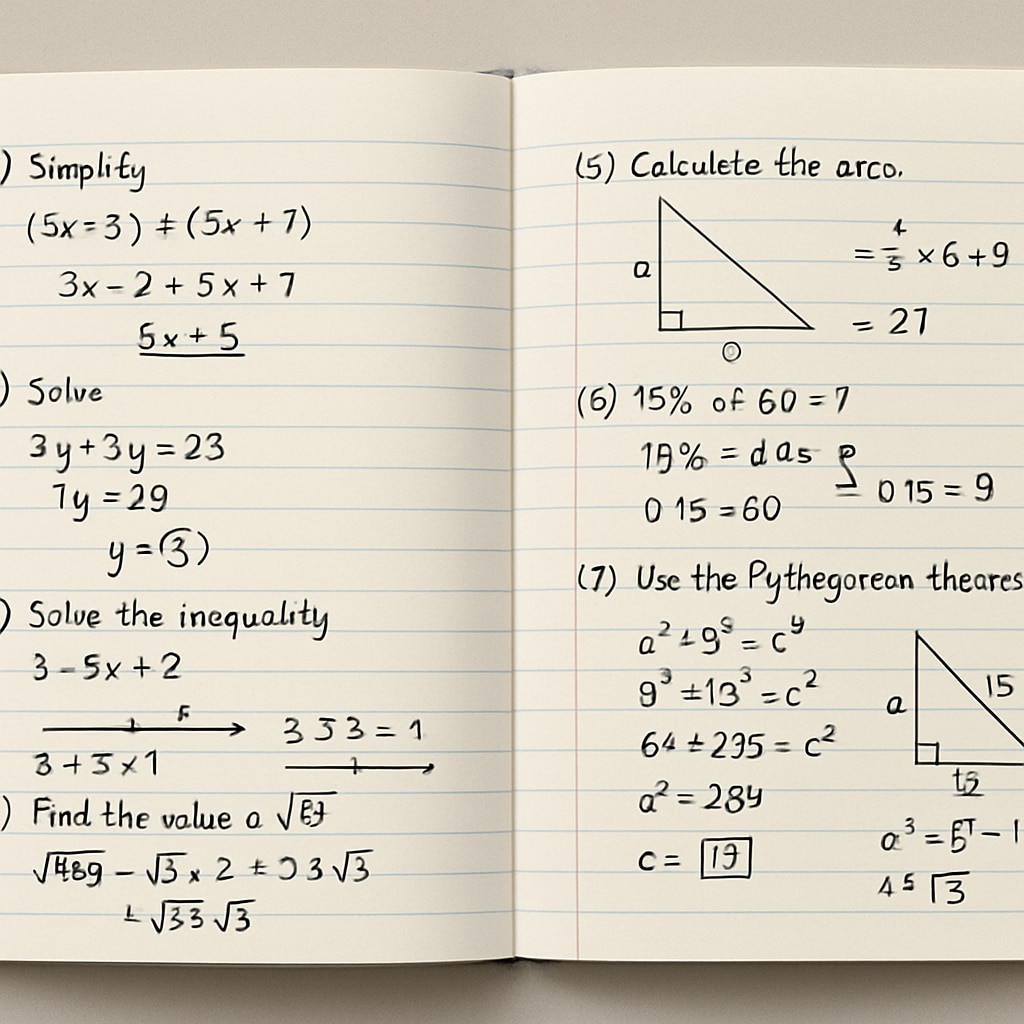 ) Simplify
(5x=3) ± (5x + 7)
3x - 2 + 5x + 7
5x + 5
) Solve
3y + 3y = 23
7y = 29
y = (3)
) Solve the inequality
3 - 5x + 2
3 5 3 = 1
3 + 5 x 1
) Find the value a √
- √3 x 2 ± 3 √3
√33 √3
(5) Calculete the arco.
a
= × 6 + 9
= 27
(6) 15% of 60 = 7
= d as
0 15 = 60
0 15 = 9
(7) Use the Pythegorean theares
a² + 9⁹ = c^y
9³ ± 13³ = c²
64 ± 295 = c²
a² = 284
c =
a
15
a³ =
4 5 √3